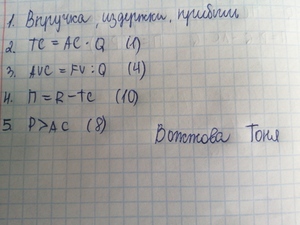 1. Впручка, издержки, прибыли
2. TC = AC · Q (1)
3. AVC = FV : Q (4)
4. П = R - TC (10)
5. P > AC (8)
Вожтова Тоня